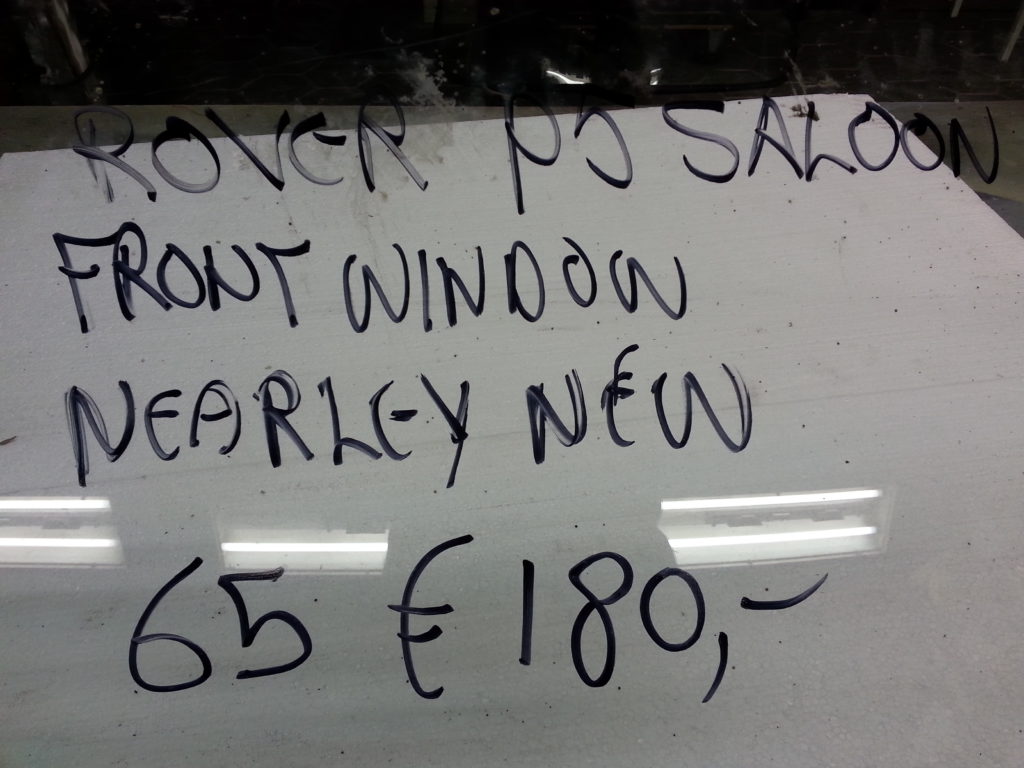 ROVER P5 SALOON
FRONT WINDOW
NEARLEY NEW
65 € 180,-